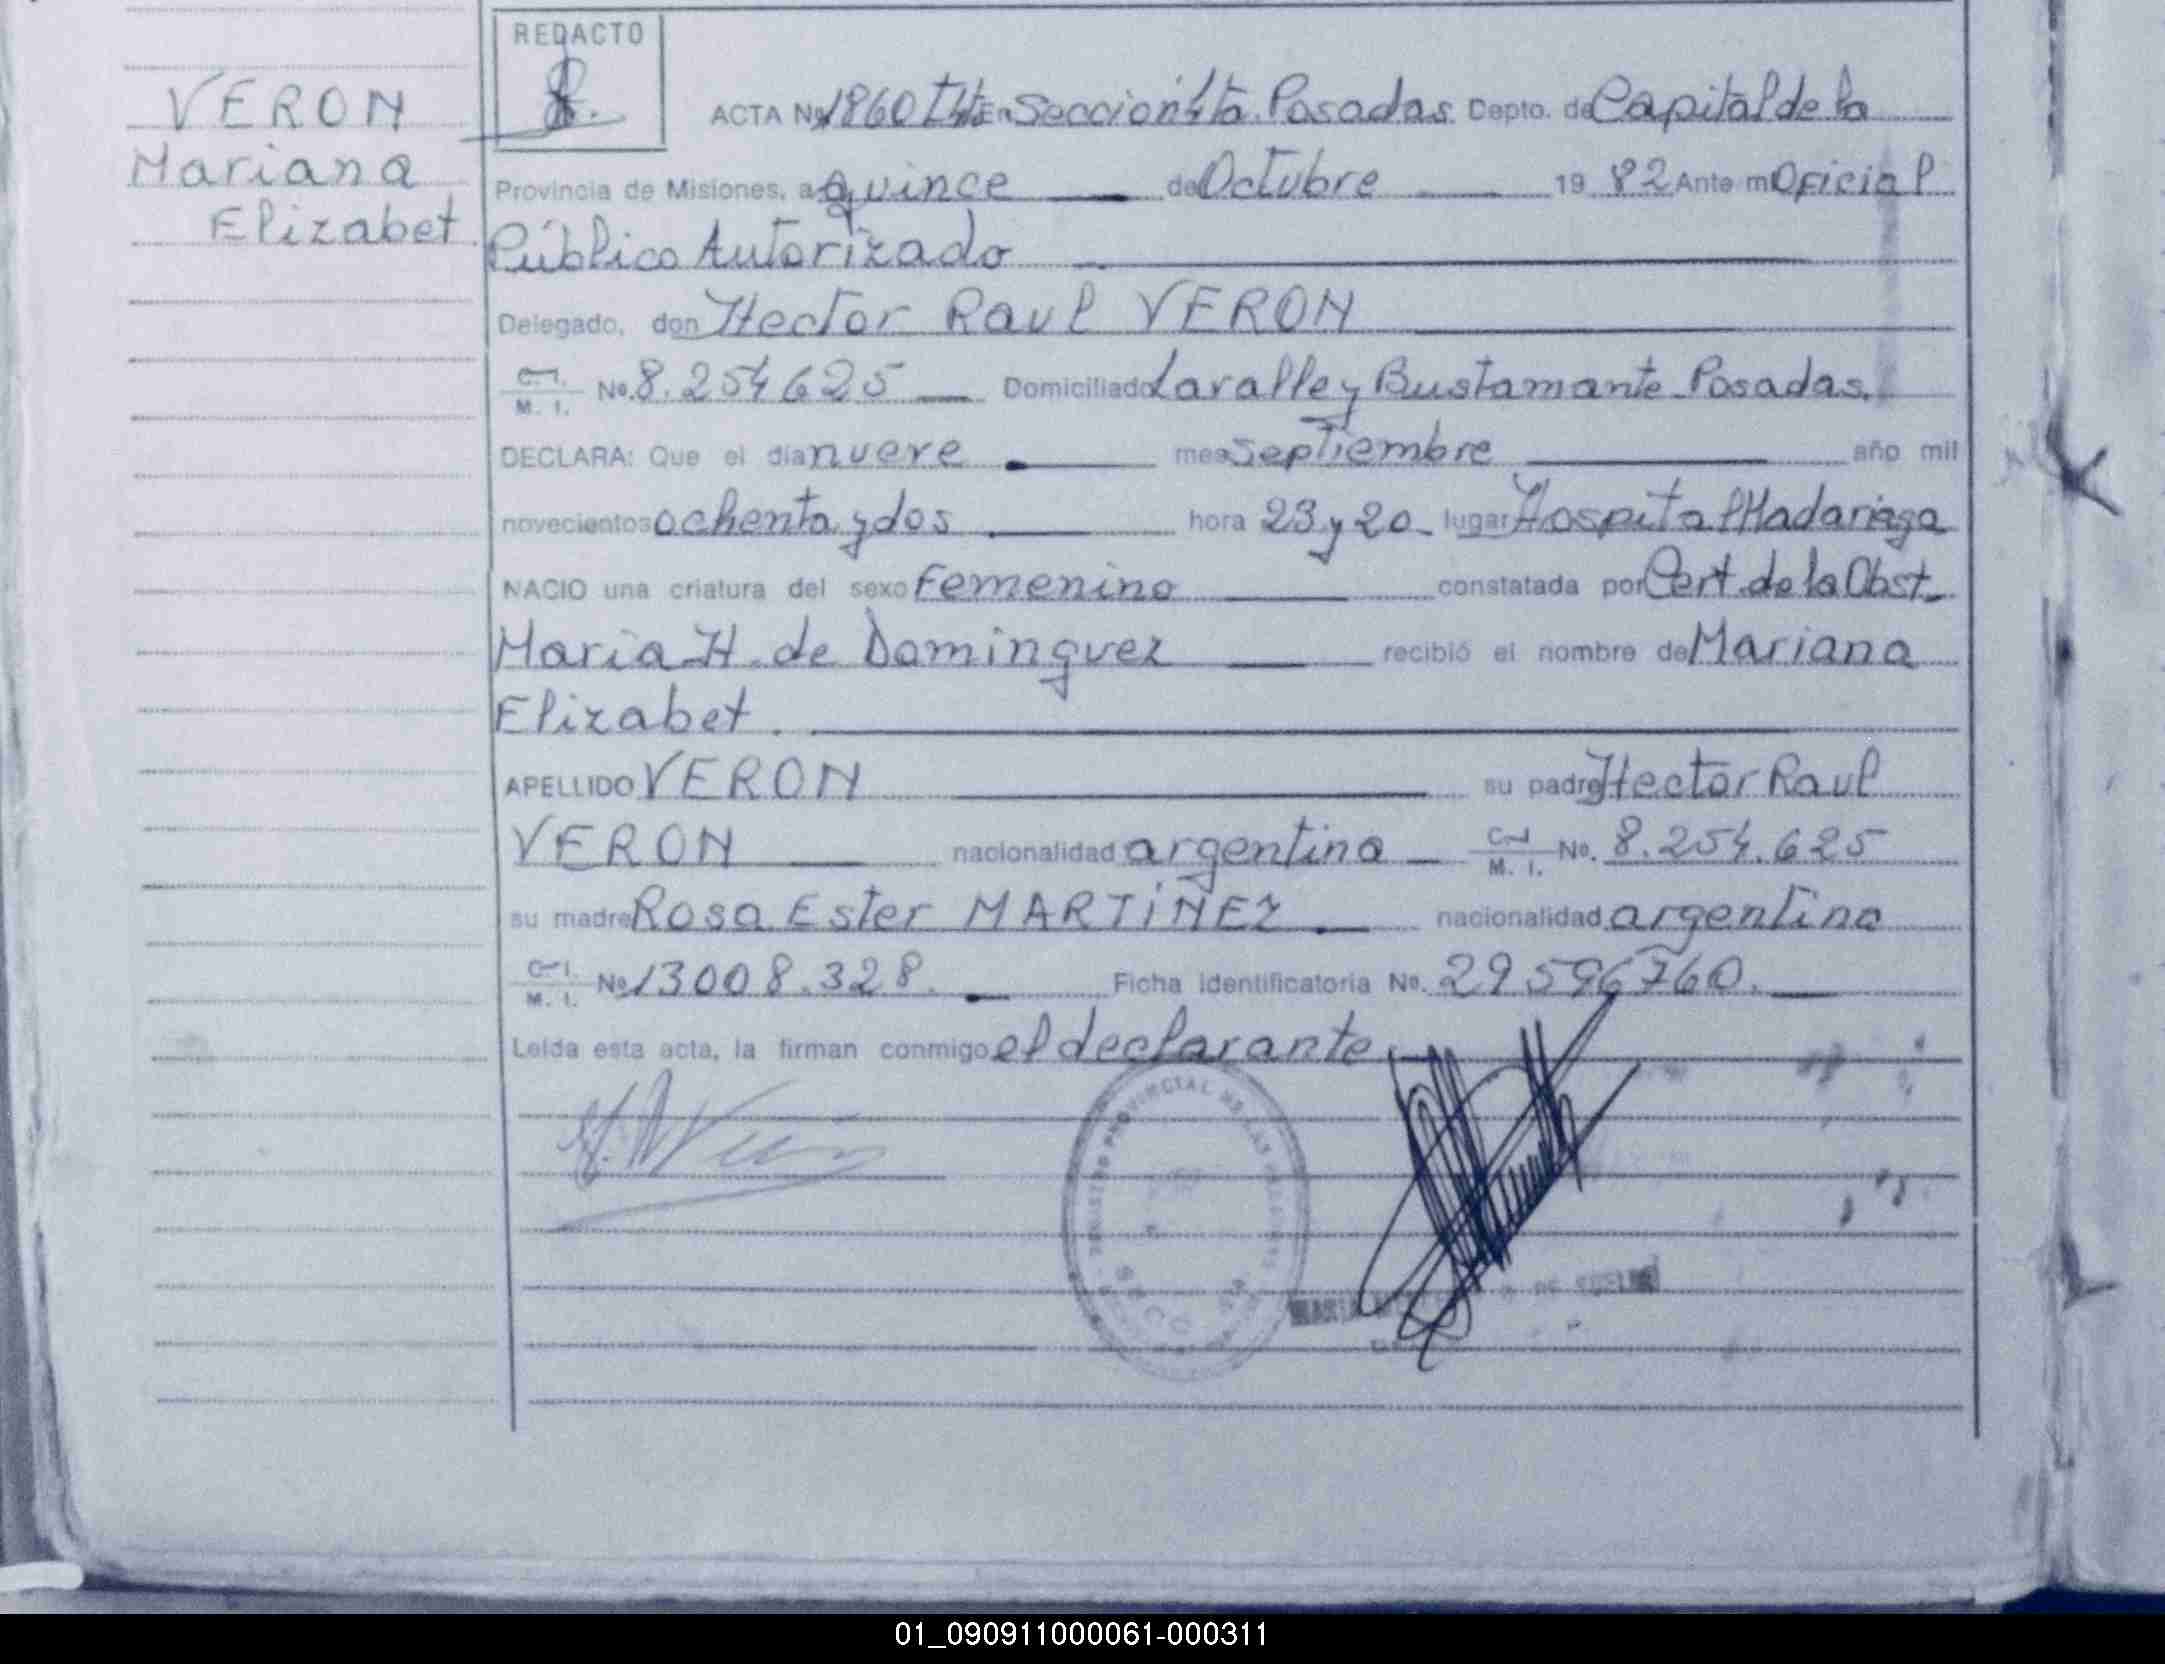 REDACTO
VERON
Mariana
Elizabet
ACTA Nº 1860 En Seccion 4ta. Posadas. Depto. de Capital de la
Provincia de Misiones, a quince de Octubre 19 82 Ante mi Oficial
Público Autorizado
Delegado, don Hector Raul VERON
C. I. M. I. No. 8.254625 Domiciliado Lavalle y Bustamante Posadas.
DECLARA: Que el día nueve mes Septiembre año mil
novecientos ochenta y dos hora 23 y 20 lugar Hospital Madariaga
NACIO una criatura del sexo Femenino constatada por Cert. de la Obst.
Maria H. de Dominguez recibió el nombre de Mariana
Elizabet.
APELLIDO VERON su padre Hector Raul
VERON nacionalidad argentina C. I. M. I. No. 8.254.625
su madre Rosa Ester MARTINEZ nacionalidad argentina
C. I. M. I. No 13008.328. Ficha identificatoria No. 29596760.
Leída esta acta, la firman conmigo el declarante.
01_090911000061-000311